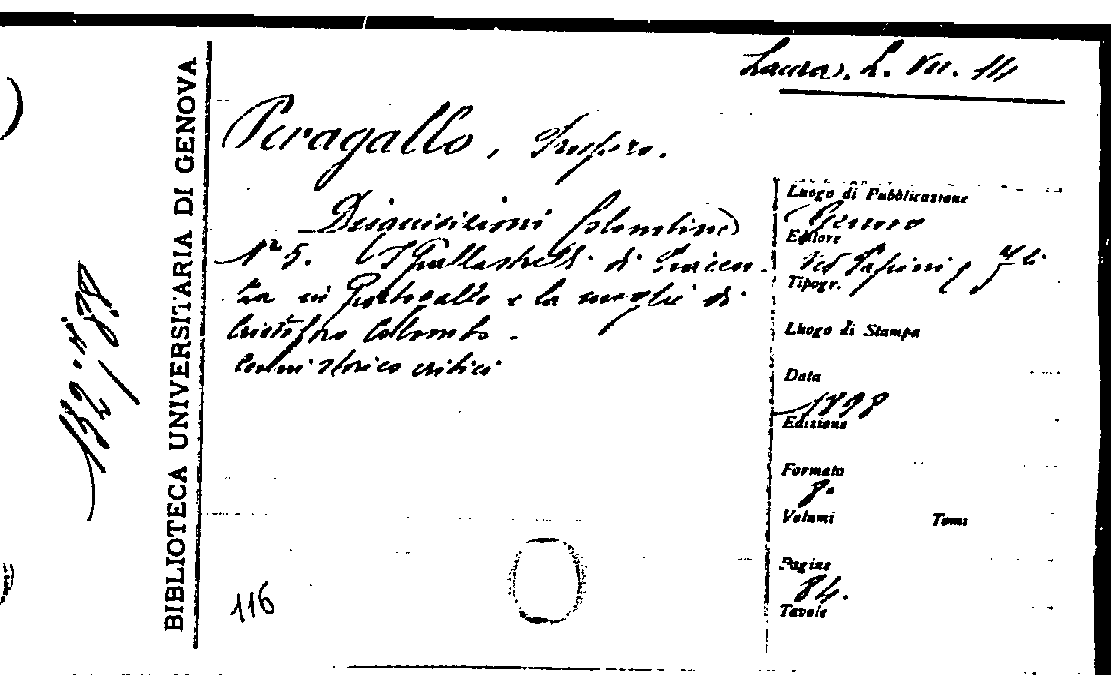 Laura. L. VII. 14
Peragallo, Prospero.
Disquisizioni Colombine
Nº 5. I Pallastrelli di Piacen-
za in Portogallo e la moglie di
Cristoforo Colombo.
Cenni storico critici
116
BIBLIOTECA UNIVERSITARIA DI GENOVA
Luogo di Pubblicazione
Genova
Editore
Tipogr.
Luogo di Stampa
Data
1898
Edizione
Formato
8º
Volumi Tomi
Pagine
84.
Tavole